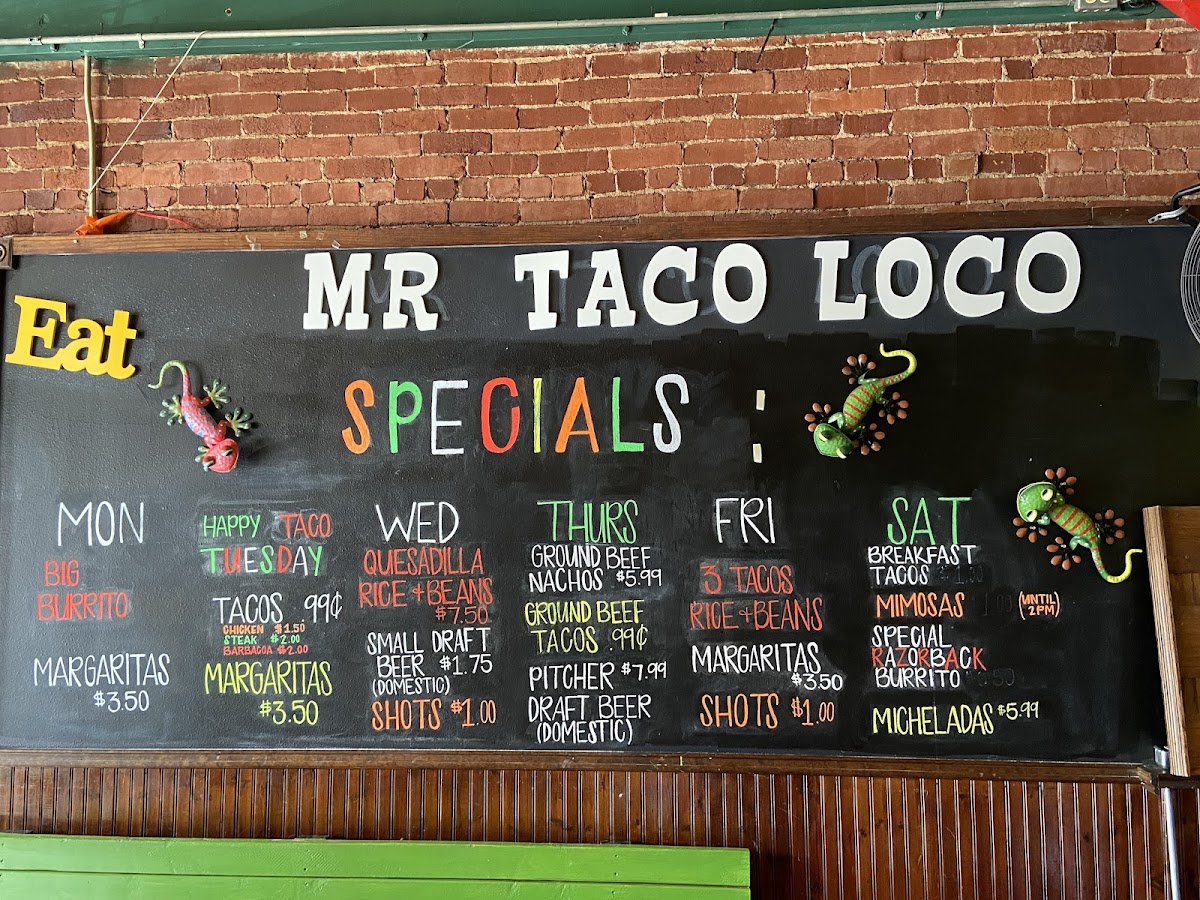 MR TACO LOCO
Eat
SPECIALS :
MON
BIG
BURRITO
MARGARITAS
$3.50
HAPPY TACO
TUESDAY
TACOS 99¢
CHICKEN $1.50
STEAK $2.00
BARBACOA $2.00
MARGARITAS
$3.50
WED
QUESADILLA
RICE + BEANS
$7.50
SMALL DRAFT
BEER $1.75
(DOMESTIC)
SHOTS $1.00
THURS
GROUND BEEF
NACHOS $5.99
GROUND BEEF
TACOS .99¢
PITCHER $7.99
DRAFT BEER
(DOMESTIC)
FRI
3 TACOS
RICE + BEANS
MARGARITAS
$3.50
SHOTS $1.00
SAT
BREAKFAST
TACOS
MIMOSAS (UNTIL
2PM)
SPECIAL
RAZORBACK
BURRITO
MICHELADAS $5.99